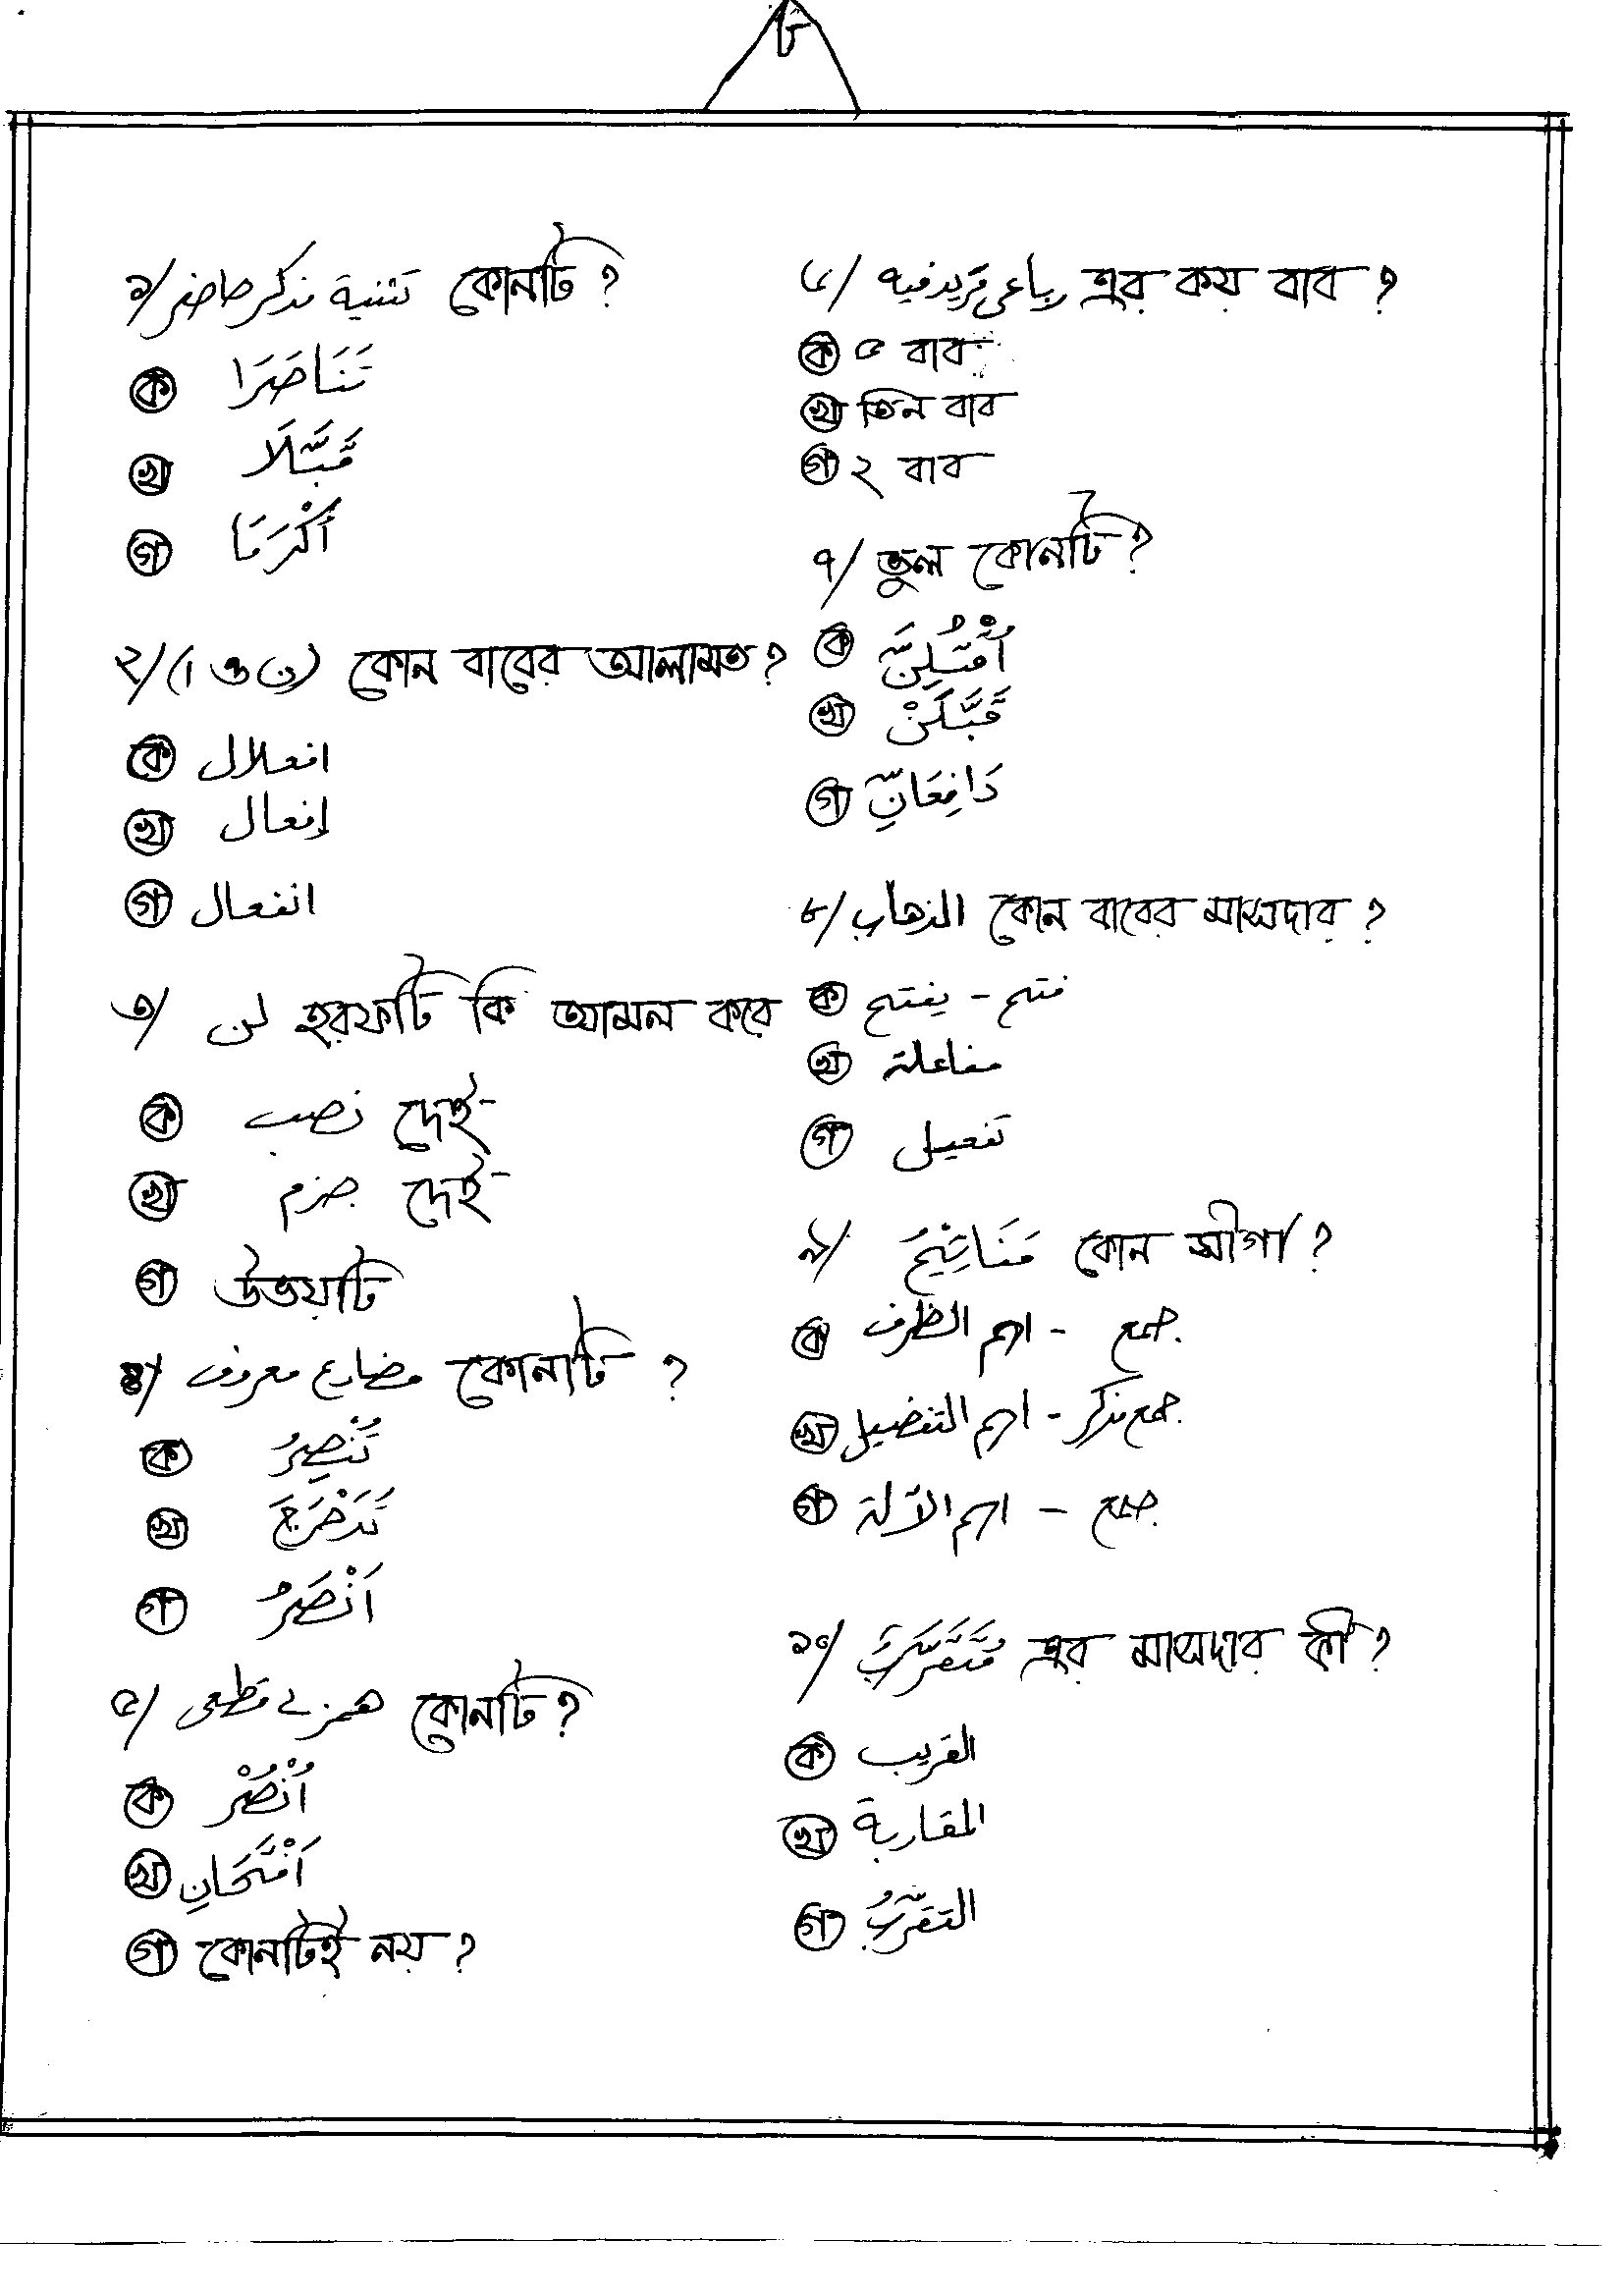 ট
১/ تثنیة مذکر حاضر কোনটি ?
ক تَنَاصَرَا
খ قَبَّلَا
গ أَكْرَمَا
২/ (ا ও ن) কোন বাবের আলামত ?
ক افعلال
খ إفعال
গ انفعال
৩/ لن হরফটি কি আমল করে
ক نصب দেই
খ جزم দেই
গ উভয়টি
৪/ مضارع معروف কোনটি ?
ক تُنْصِرُ
খ تَدَحْرَجَ
গ اَنْصَرُ
৫/ همزے قطعی কোনটি ?
ক اُنْصُرْ
খ اَمْتَحَانِ
গ কোনটিই নয় ?
৬/ رباعی مزید فیه এর কয় বাব ?
ক ৫ বাব
খ তিন বাব
গ ২ বাব
৭/ ভুল কোনটি ?
ক اُقْتُلِنَّ
খ قَبَّلَنْ
গ دَافِعَانِّ
৮/ الذهاب কোন বাবের মাসদার ?
ক فتح - يفتح
খ مفاعلة
গ تفعيل
৯/ مَفَاتِيْحُ কোন সীগা ?
ক جمع - اسم الظرف
খ جمع مذكر - اسم التفضيل
গ جمع - اسم الآلة
১০/ مَتَقَرَّبَ এর মাসদার কী ?
ক القريب
খ المقاربة
গ التقرّبُ